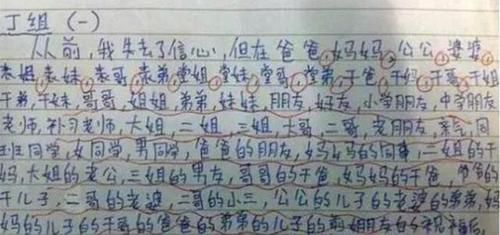 丁组（一）
从前，我失去了信心，但在爸爸，妈妈，公公，婆婆，
表姐，表妹，表哥，表弟，堂姐，堂妹，堂哥，堂弟，干爸，干妈，干哥，干姐
干弟，干妹，哥哥，姐姐，弟弟，妹妹，朋友，好友，小学朋友，中学朋友
老师，补习老师，大姐，二姐，三姐，大哥，二哥，老朋友，亲气，同
班同学，女同学，男同学，爸爸的朋友，妈妈的同事，二姐的干
妈，大姐的老公，三姐的男友，哥哥的干爸，妈妈的干爸，爸爸的
干儿子，二哥的老婆，二哥的小三，公公的儿子的老婆的弟弟，妈
妈的儿子的干哥的爸爸的弟弟的儿子的前女朋友的祝福后，